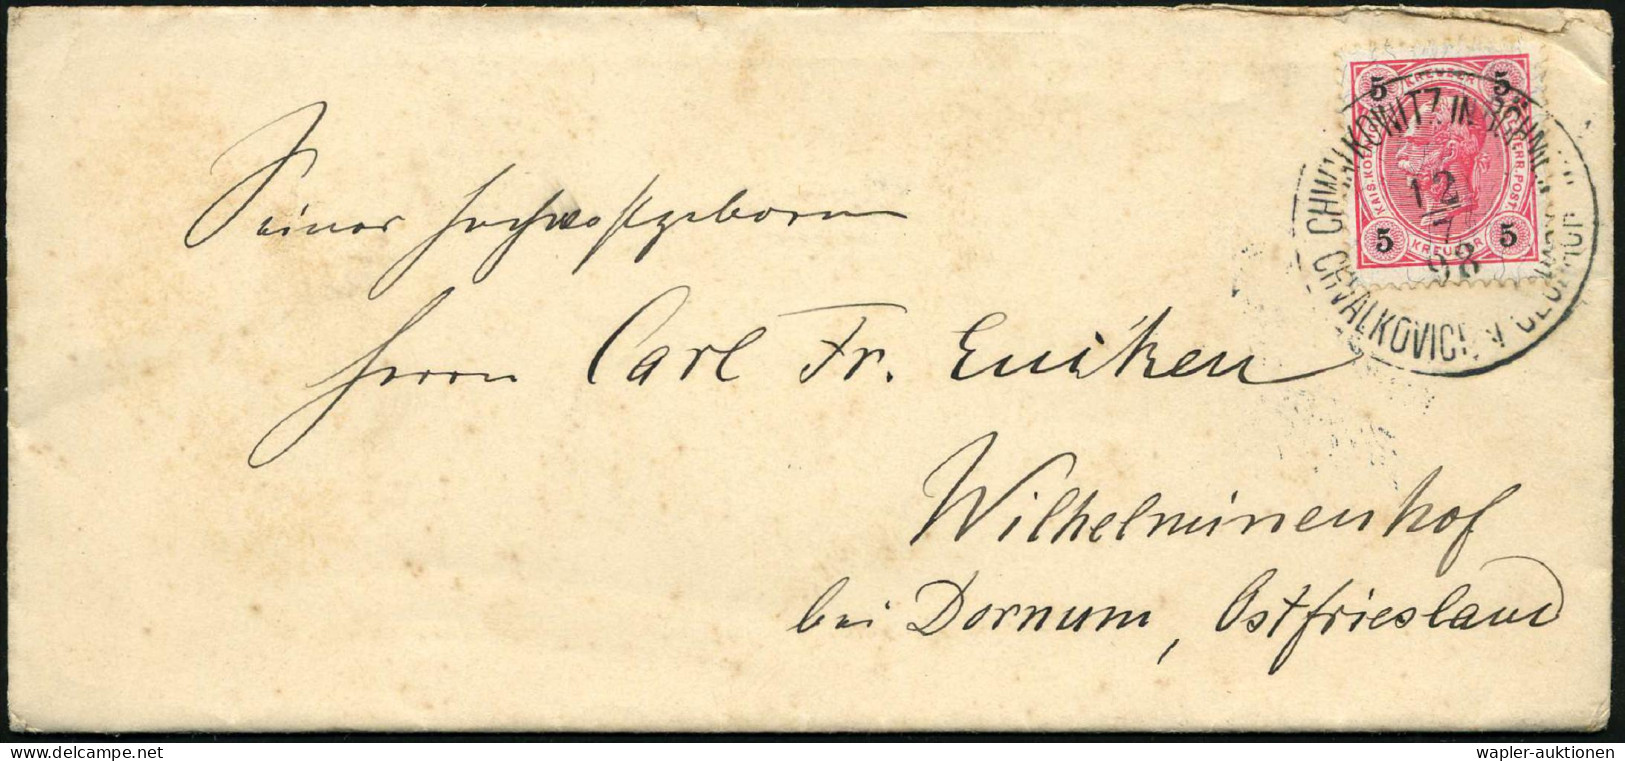 Seiner Hochwohlgeboren
Herrn Carl Fr. Eucken
Wilhelminenhof
bei Dornum, Ostfriesland
5 KREUZER 5
KAIS. KOE
ERR. POST
5 KREUZER 5
CHWALKOWITZ IN BÖHMEN
12
7
98
CHVALKOVICE V
delcampe.net
wapler-auktionen